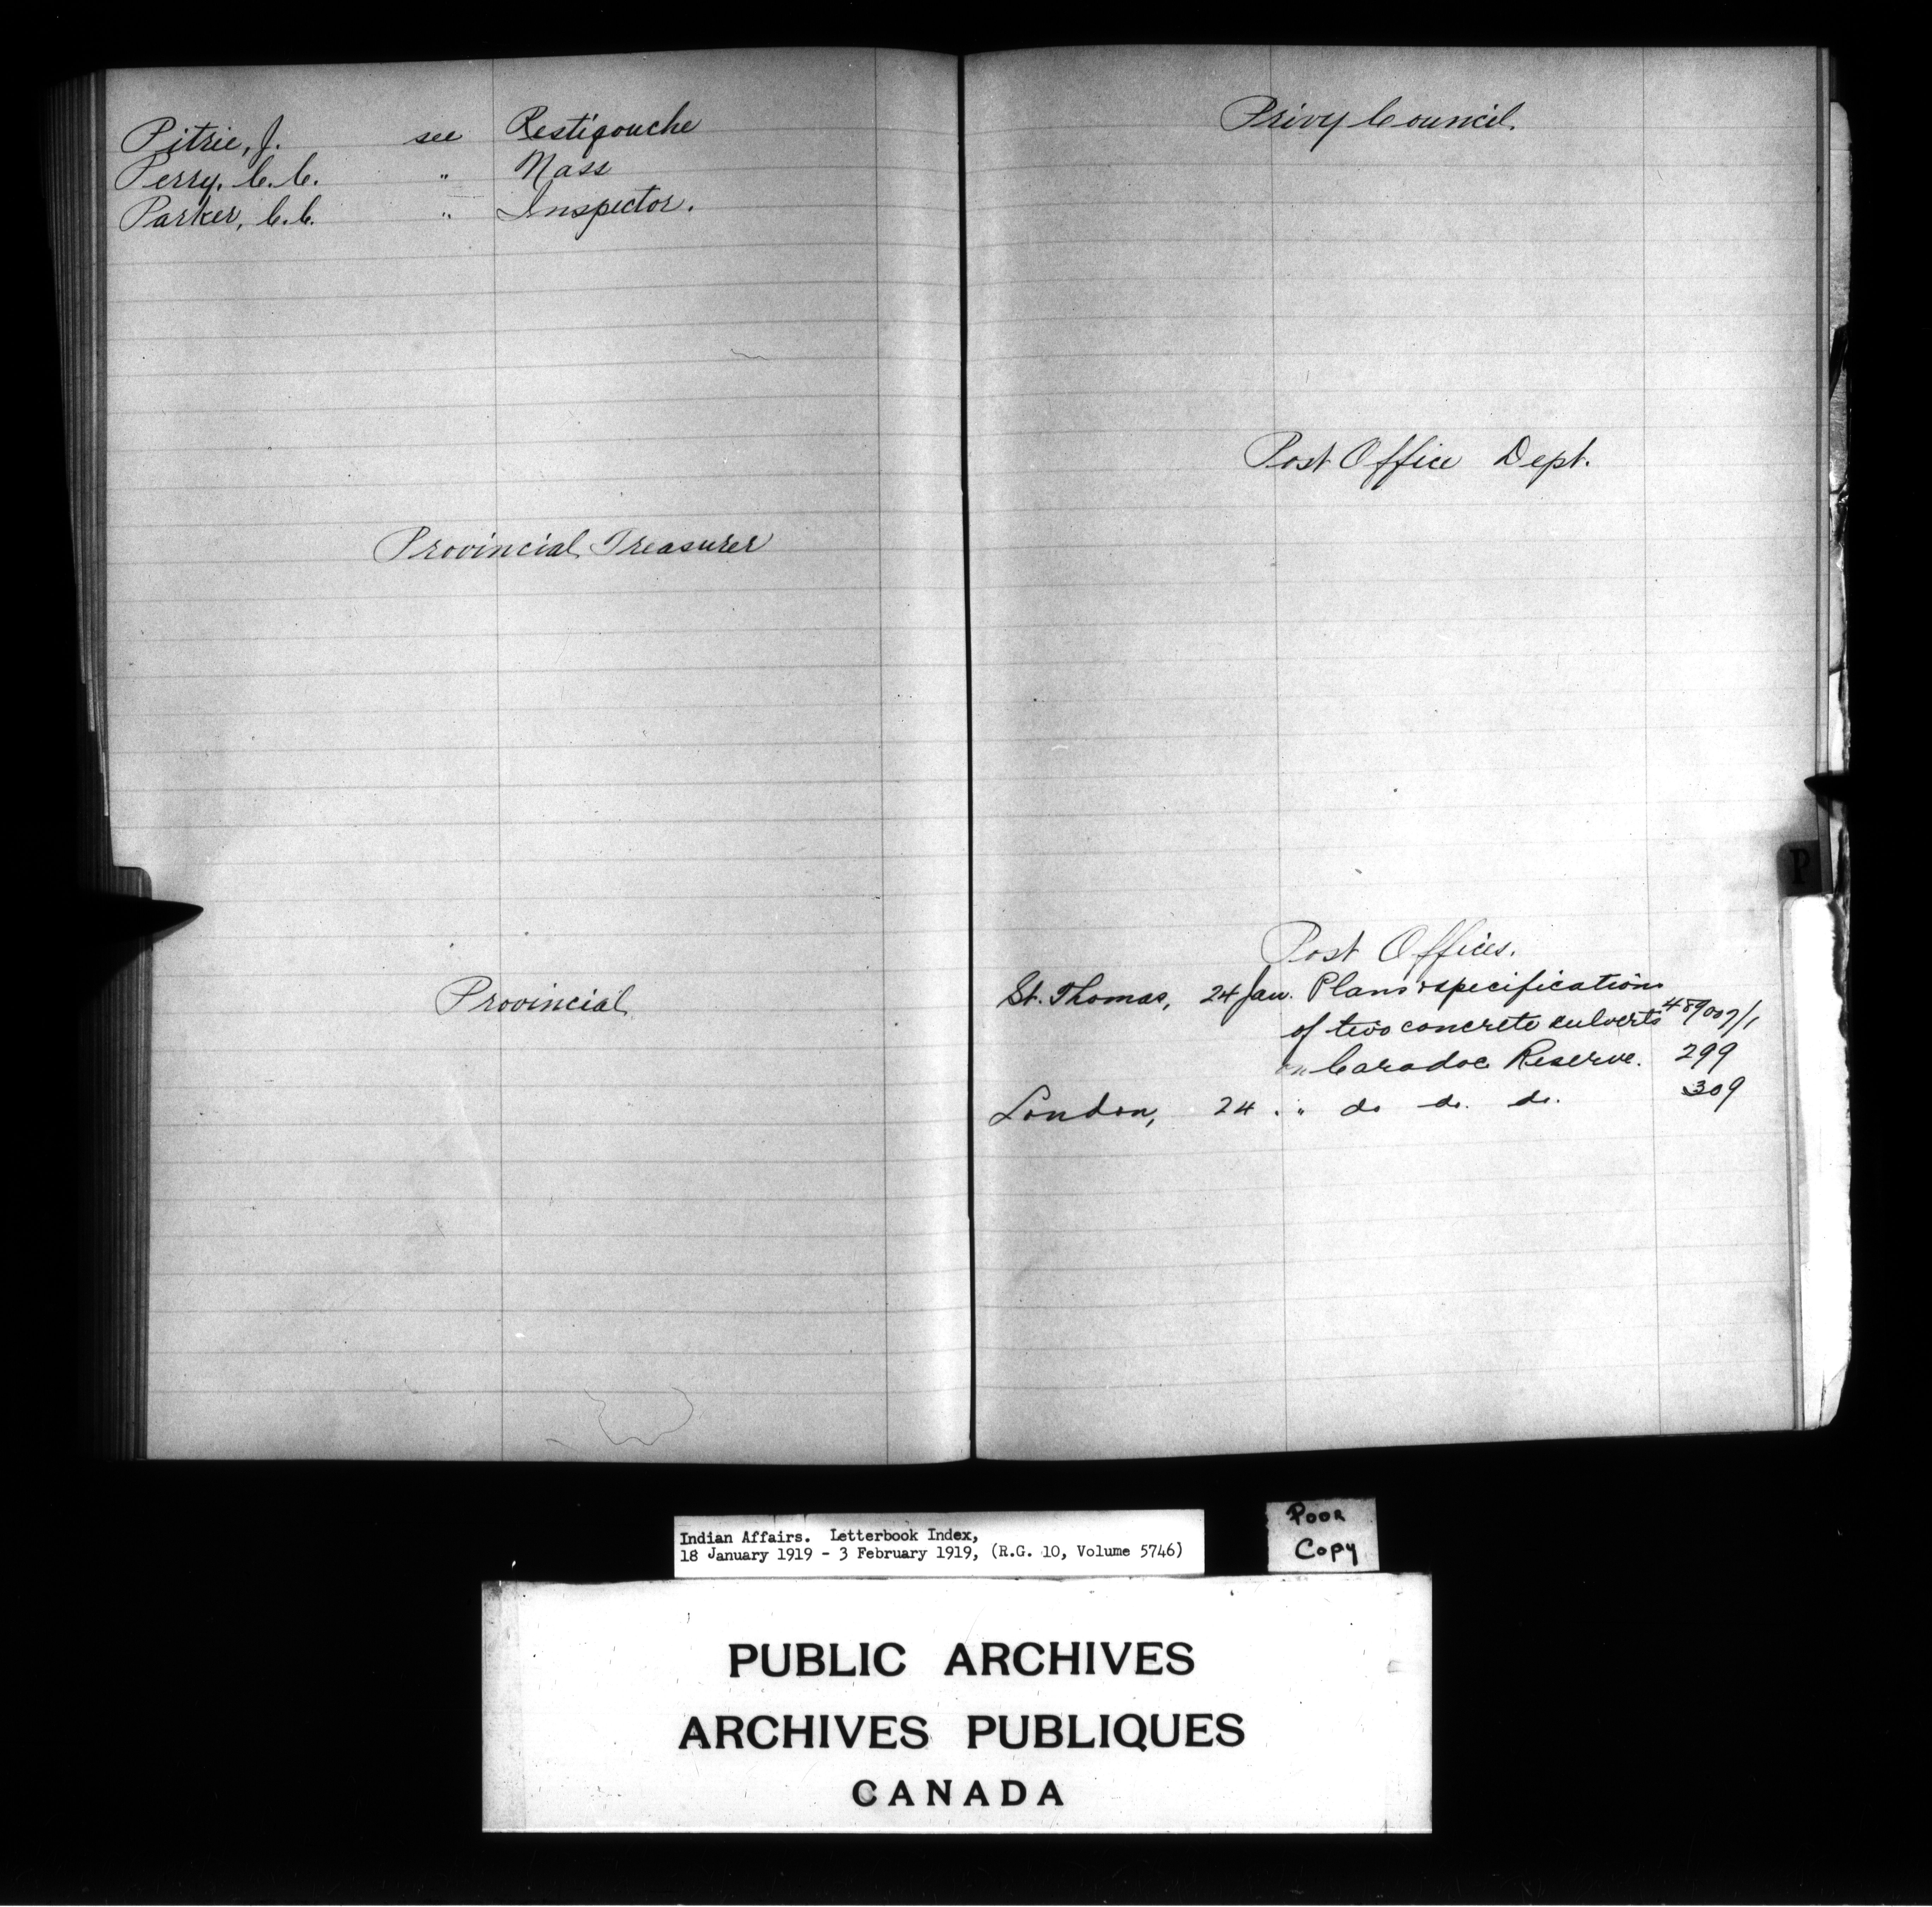 Pitrie, J. see Restigouche
Perry, C. C. " Nass
Parker, C. C. " Inspector.
Provincial Treasurer
Provincial
Privy Council.
Post Office Dept.
P
Post Offices.
St. Thomas, 24 Jan. Plans & specifications
of two concrete culverts 489007/1
on Caradoc Reserve. 299
London, 24 " do do. do. 309
Indian Affairs. Letterbook Index,
18 January 1919 - 3 February 1919, (R.G. 10, Volume 5746)
Poor
Copy
PUBLIC ARCHIVES
ARCHIVES PUBLIQUES
CANADA